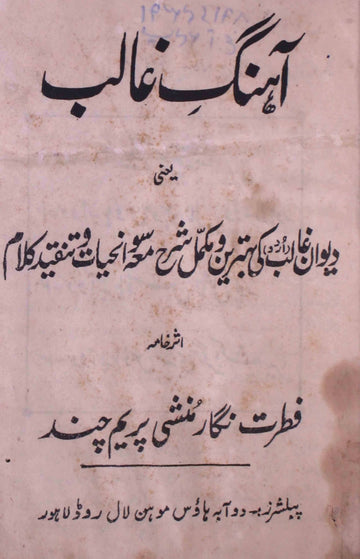 آہنگِ غالب
یعنی
دیوان غالب (اُردو) کی بہترین و مکمل شرح معہ سوانحیات و تنقید کلام
اثر خامہ
فطرت نگار مُنشی پریم چند
پبلشرز:۔ دوآبہ ہاؤس موہن لال روڈ لاہور